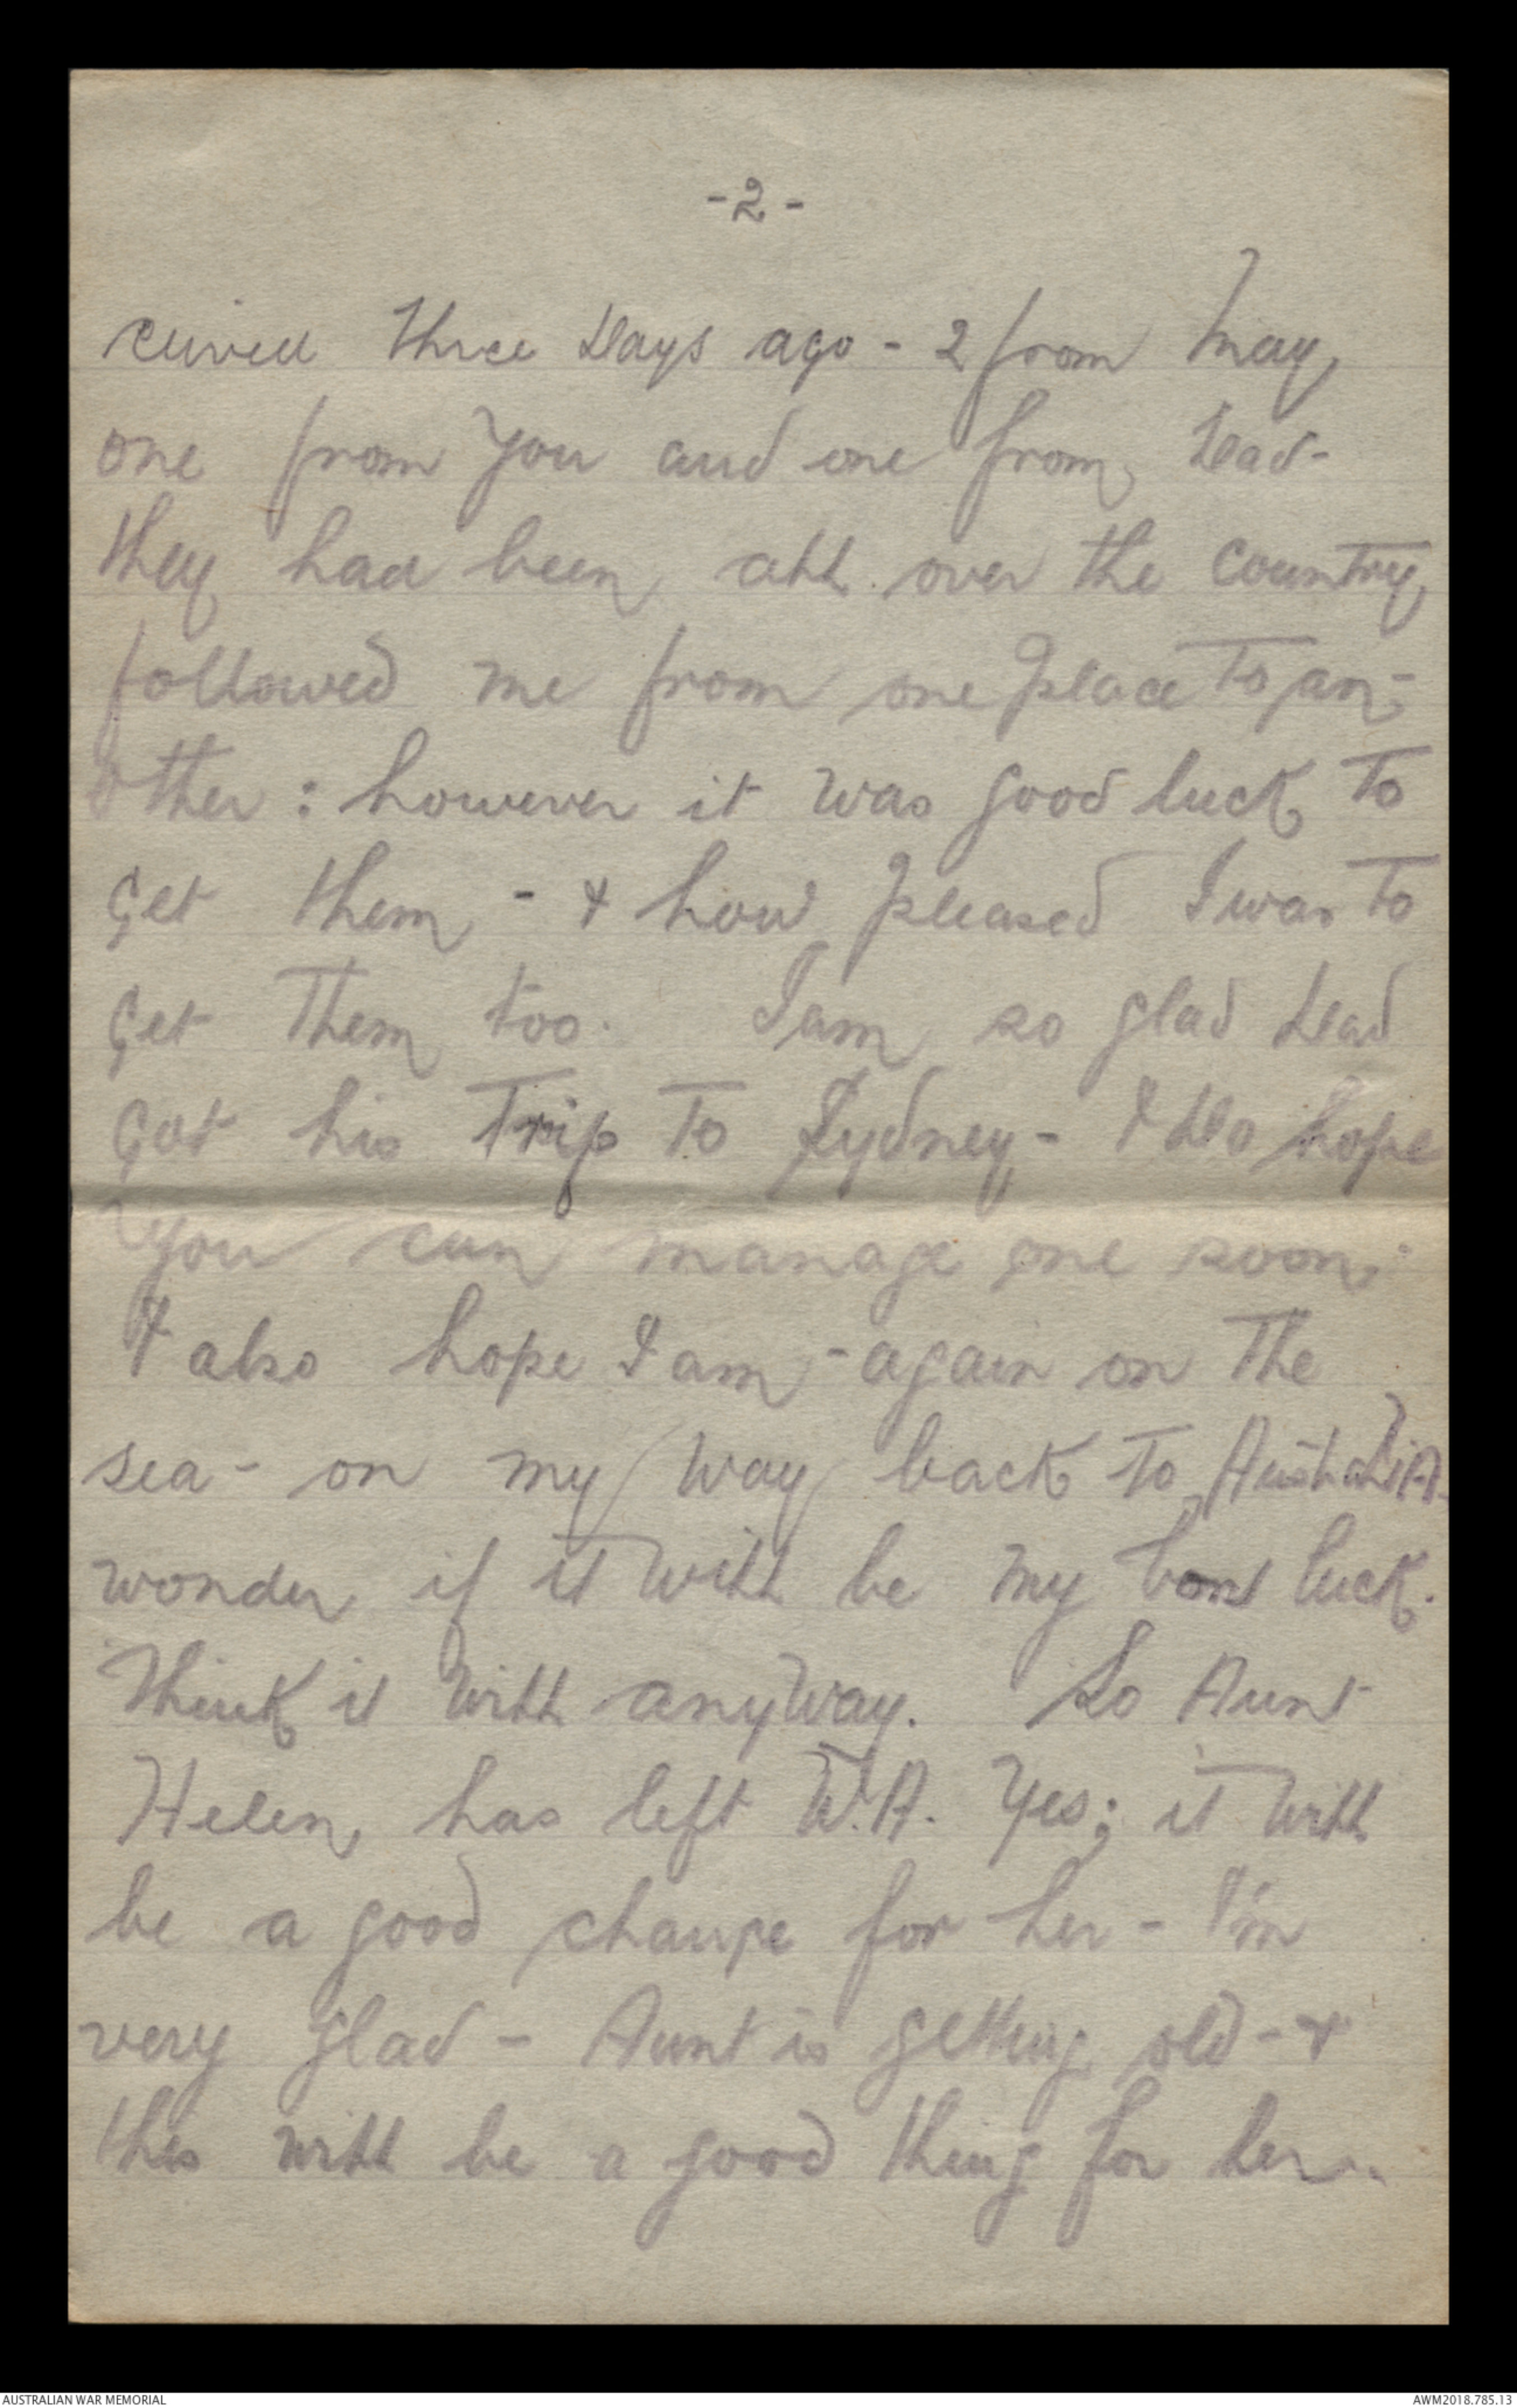 -2-
ceived three Days ago - 2 from May,
one from You and one from Dad-
they had been all over the Country
followed me from one place to an-
other : however it was good luck to
get them - & how pleased I was to
get Them too. I am so glad Dad
got his Trip to Sydney - & Do hope
You can manage one soon.
& also hope I am - again on the
sea - on my way back to AustraliA.
wonder if it will be my luck.
Think it will anyway. So Aunt
Helen has left W.A. Yes; it will
be a good change for her - I'm
very glad - Aunt is getting old - &
this will be a good thing for her.
AUSTRALIAN WAR MEMORIAL
AWM2018.785.13